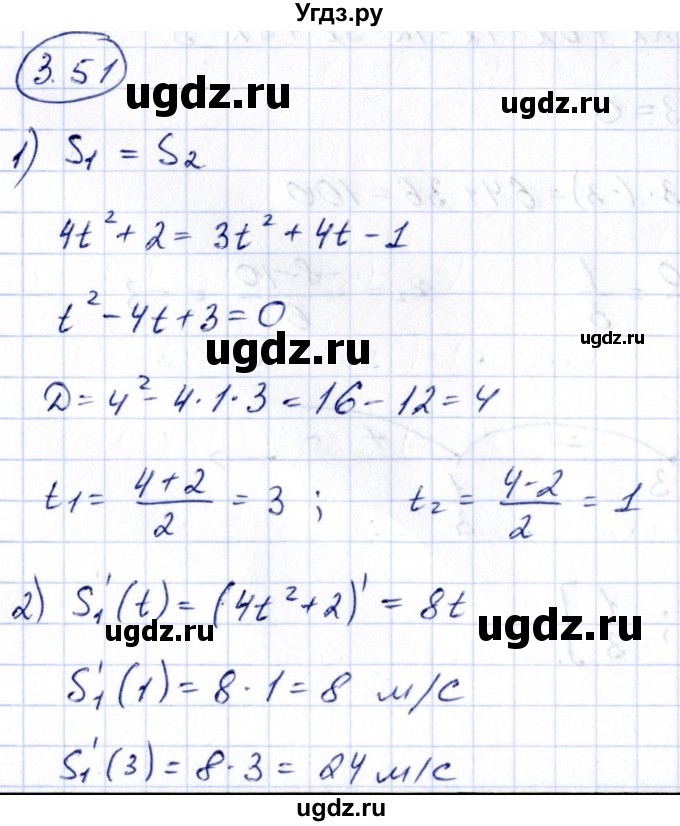 Угдз.ру
3.51
ugdz.ru
1) S₁ = S₂
ugdz.ru
4t² + 2 = 3t² + 4t - 1
t² - 4t + 3 = 0
ugdz.ru
ugdz.ru
D = 4² - 4·1·3 = 16 - 12 = 4
t₁ = (4+2)/2 = 3 ; t₂ = (4-2)/2 = 1
2) S₁'(t) = (4t² + 2)' = 8t
ugdz.ru
ugdz.ru
S₁'(1) = 8·1 = 8 м/с
S₁'(3) = 8·3 = 24 м/с
ugdz.ru